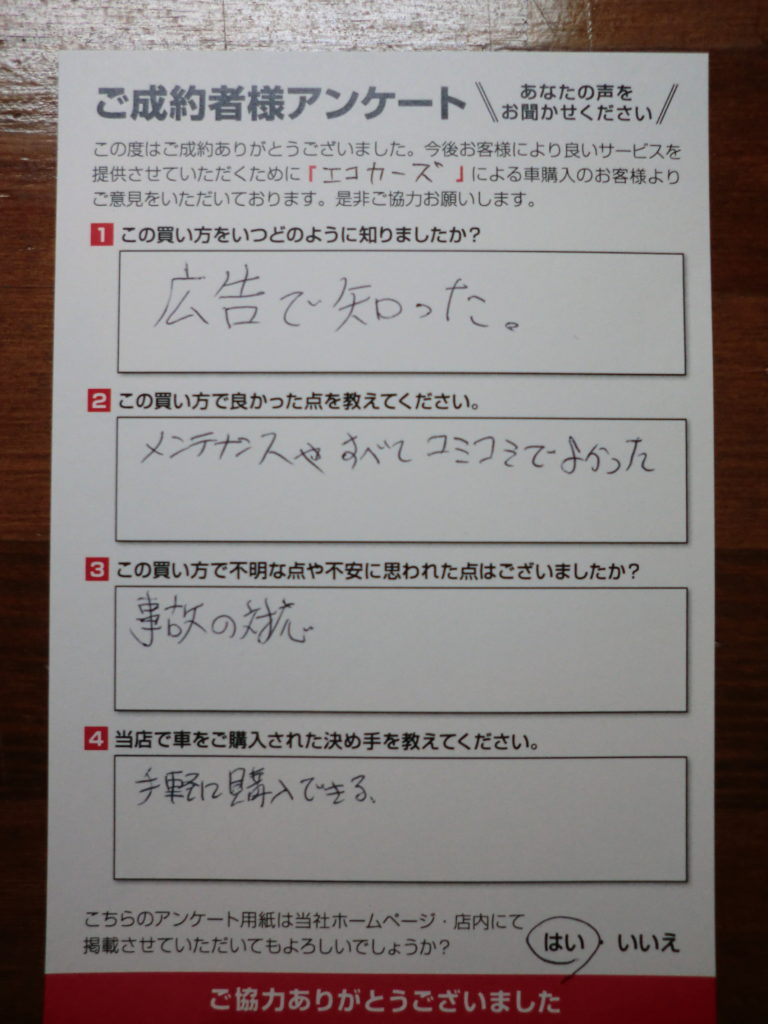 ご成約者様アンケート
あなたの声を
お聞かせください
この度はご成約ありがとうございました。今後お客様により良いサービスを
提供させていただくために「エコカーズ」による車購入のお客様より
ご意見をいただいております。是非ご協力お願いします。
1 この買い方をいつどのように知りましたか?
広告で知った。
2 この買い方で良かった点を教えてください。
メンテナンスやすべてコミコミでよかった
3 この買い方で不明な点や不安に思われた点はございましたか?
事故の対応
4 当店で車をご購入された決め手を教えてください。
手軽に購入できる、
こちらのアンケート用紙は当社ホームページ・店内にて
掲載させていただいてもよろしいでしょうか?
はい・いいえ
ご協力ありがとうございました